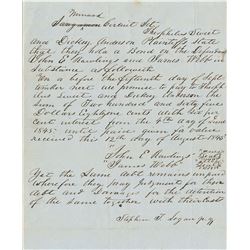 Menard
Sangamon Circuit Sct.
Theophilus Sweet
and Dickey Anderson Plaintiffs state
that they hold a Bond on the Defendants
John E Rawlings and James Webb in
substance as followeth
On or before the fourth day of Sept
under next we promise to pay Theoph
ilus Sweet and Dickey Anderson the
sum of Two hundred and sixty five
Dollars Eighteen cents with six per
cent interest from the 9th day of June
1845 until paid given for value
received this 12th day of August 1845
John E Rawlings
James Webb
Yet the Same debt remains unpaid
Wherefore they pray judgment for there
debt and Damages for the detention
of the same together with the cost
Stephen T. Logan p.q